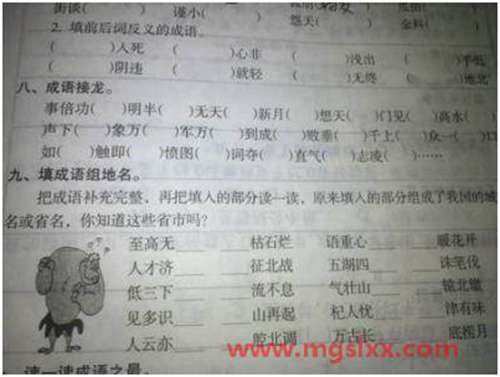 街谈(　　) 谨小(　　)
怨天(　　)
2. 填前后词反义的成语。
(　　)人死 (　　)心非 (　　)浅出 (　　)手低
(　　)阴违 (　　)就轻 (　　)无终 (　　)地北
八、成语接龙。
事倍功(　　)明半(　　)无天(　　)新月(　　)想天(　　)门见(　　)高水(　　)
声下(　　)象万(　　)军万(　　)到成(　　)败垂(　　)千上(　　)众一(　　)口
如(　　)触即(　　)愤图(　　)词夺(　　)直气(　　)志凌(　　)……
九、填成语组地名。
把成语补充完整，再把填入的部分读一读，原来填入的部分组成了我国的城
名或省名，你知道这些省市吗？
至高无____ ____枯石烂 语重心____ ____暖花开
人才济____ ____征北战 五湖四____ ____诛笔伐
低三下____ ____流不息 气壮山____ ____辕北辙
见多识____ ____山再起 杞人忧____ ____津有味
人云亦____ ____腔北调 万古长____ ____底捞月
www.mgslxx.com
读一读成语之最。